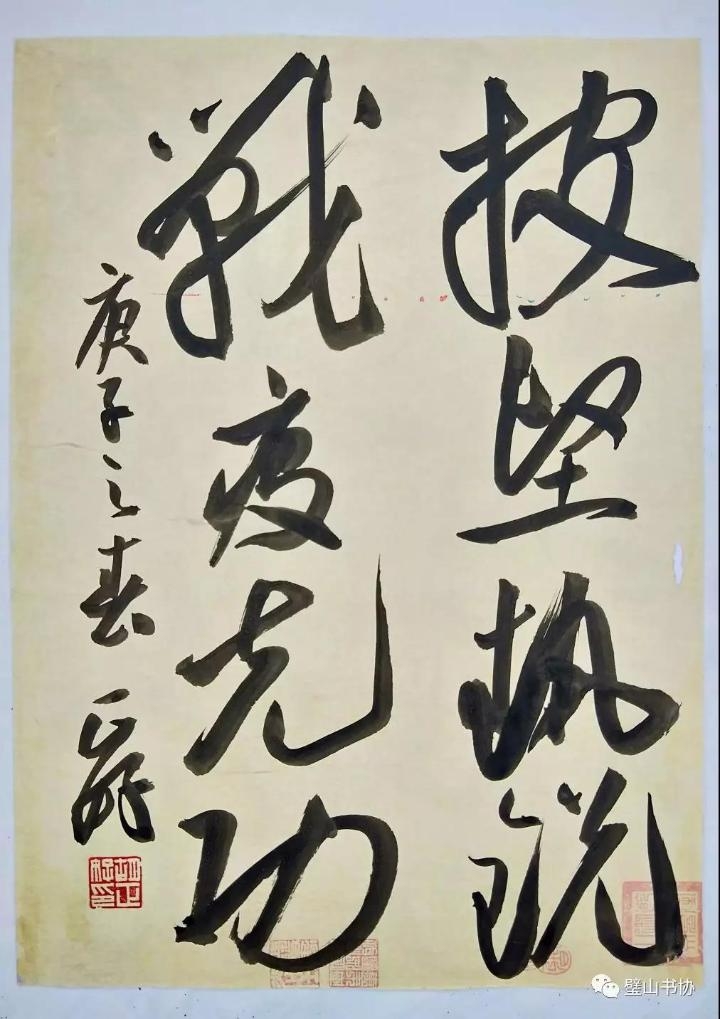 披坚执锐
戰疫先功
庚子之春
璧山书协